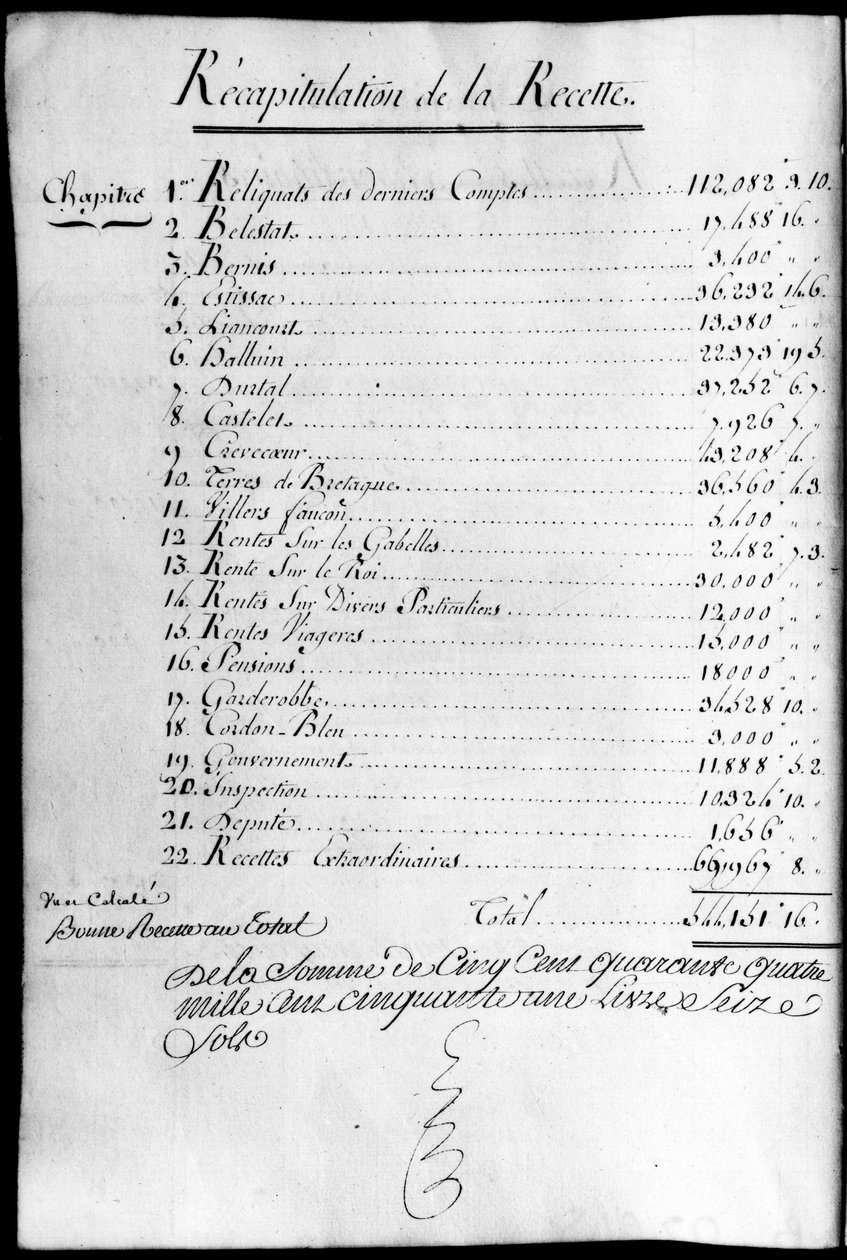 Récapitulation de la Recette.
Chapitre 1er. Reliquats des derniers Comptes 112,082" 3. 10.
2. Belestat 17,488" 16. "
3. Bernis 3,400" " "
4. Estissac 36,232" 14. 6.
5. Liancourt 13,380" " "
6. Halluin 22,373" 19 5.
7. Durtal 37,252" 6. 7.
8. Castelet 7,926" 7. "
9 Crevecœur 43,208" 4. "
10. Terres de Bretagne 36,560" 4. 3.
11. Villers faucon 5,400" " "
12 Rentes Sur les Gabelles 2,482" 7. 3.
13. Rente Sur le Roi 30,000" " "
14. Rentes Sur Divers Particuliers 12,000" " "
15. Rentes Viageres 15,000" " "
16. Pensions 18000" " "
17. Garderobbe 34,528" 10. "
18. Cordon-Bleu 3,000" " "
19. Gouvernement 11,888" 5. 2.
20. Inspection 10,324" 10. "
21. Député 1,656" " "
22. Recettes Extraordinaires 69,967" 8. "
Vu et Calculé
Bonne Recette au Total
Total 544,151" 16.
De la Somme de Cinq Cent quarante quatre
mille Cent cinquante une Livres Seize
Sols